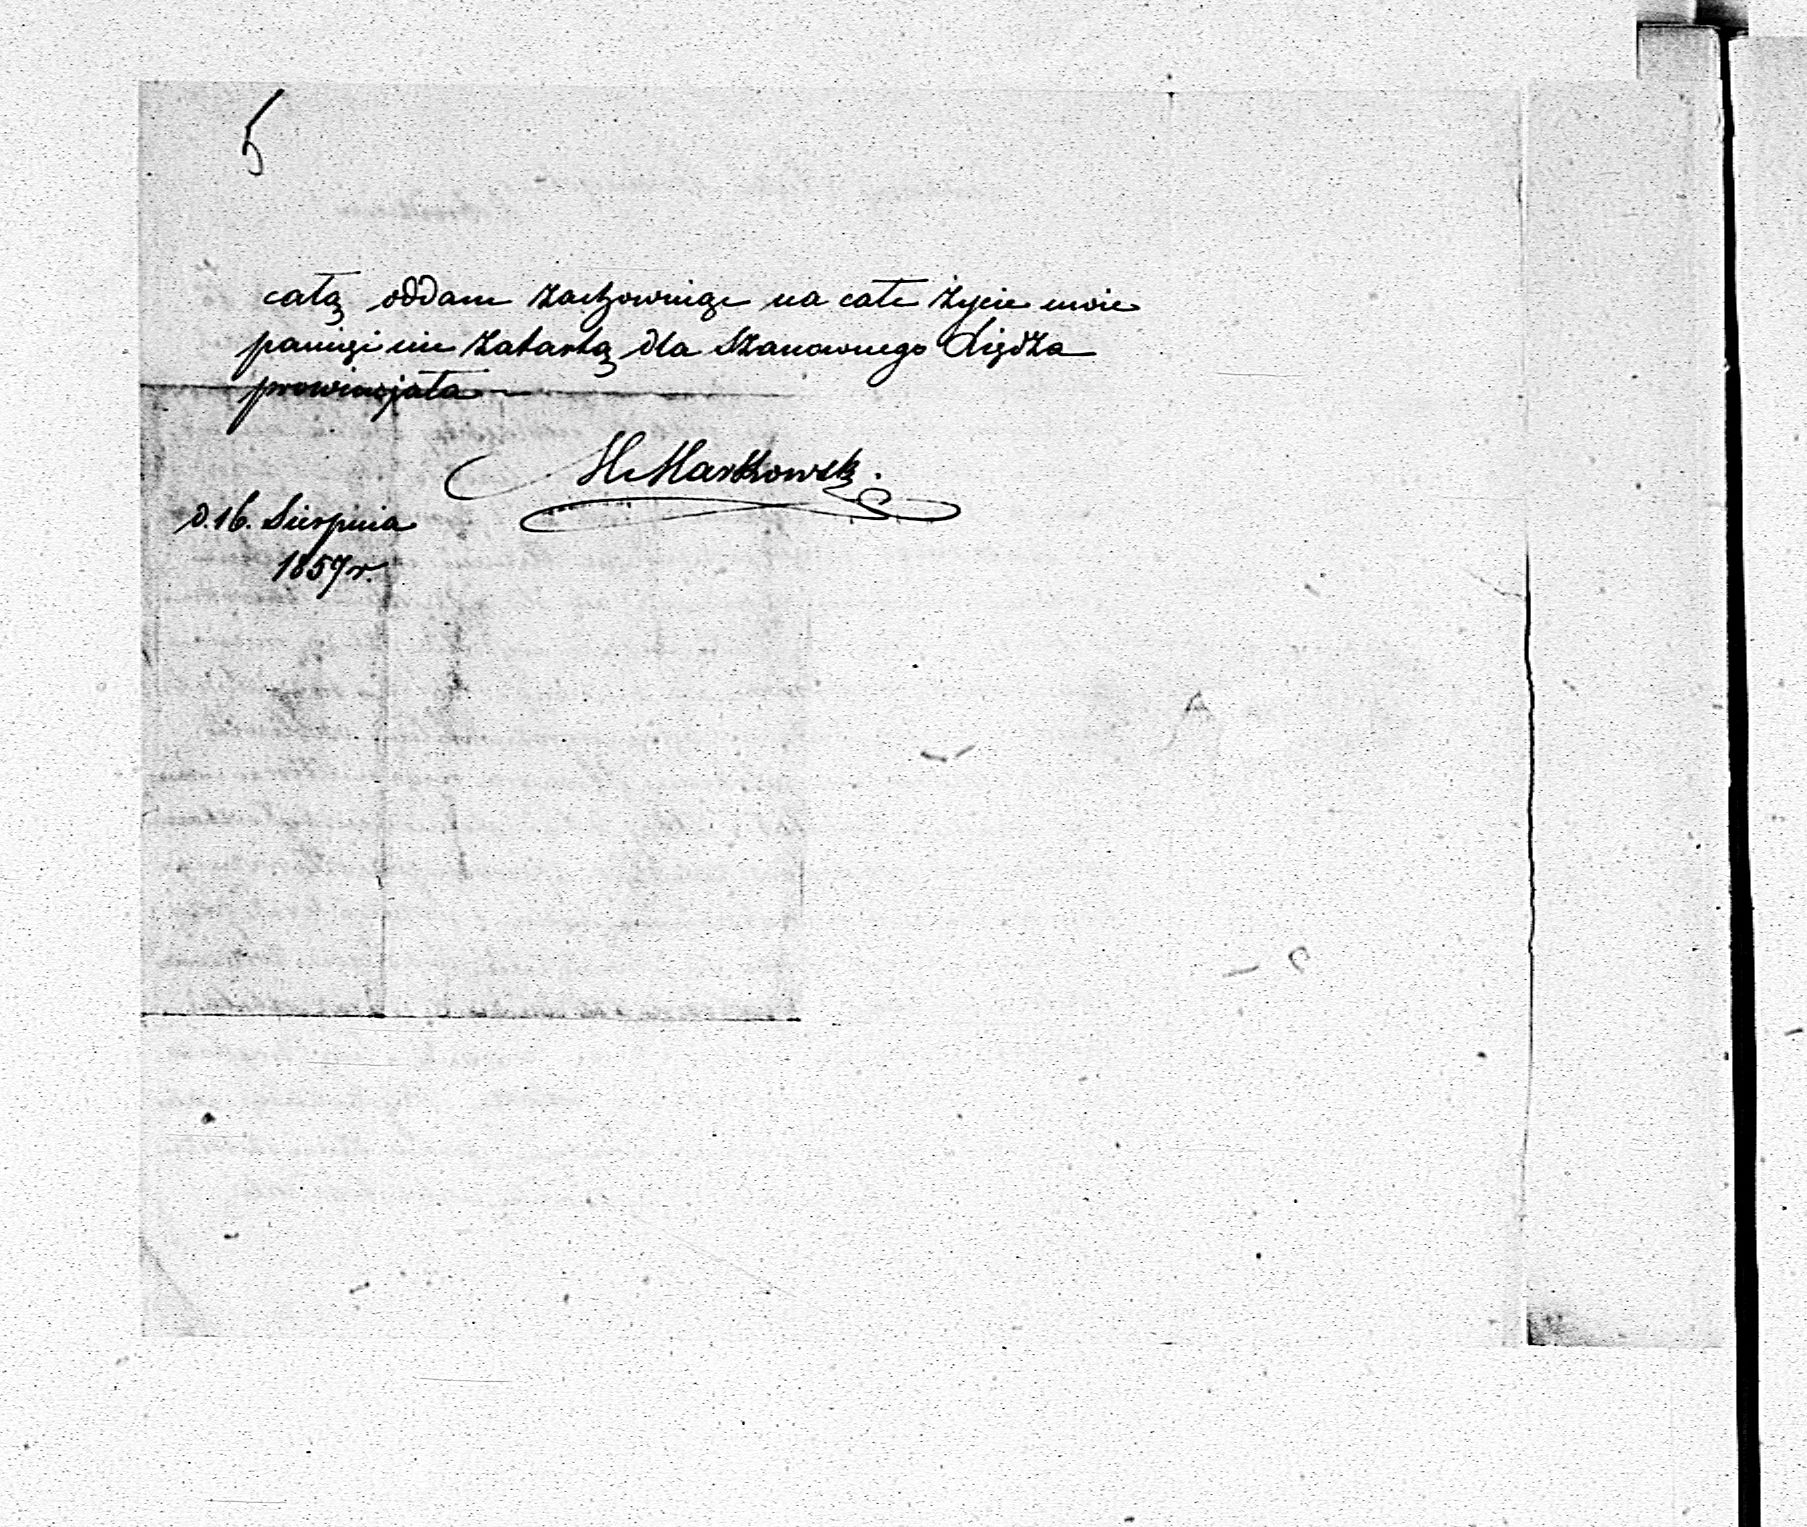 5
całą oddam zachowując na całe życie moie
pamięć nie zatartą dla Szanownego Xiędza
prowincjała
H Markowski.
d. 16. Sierpnia
1857 r.